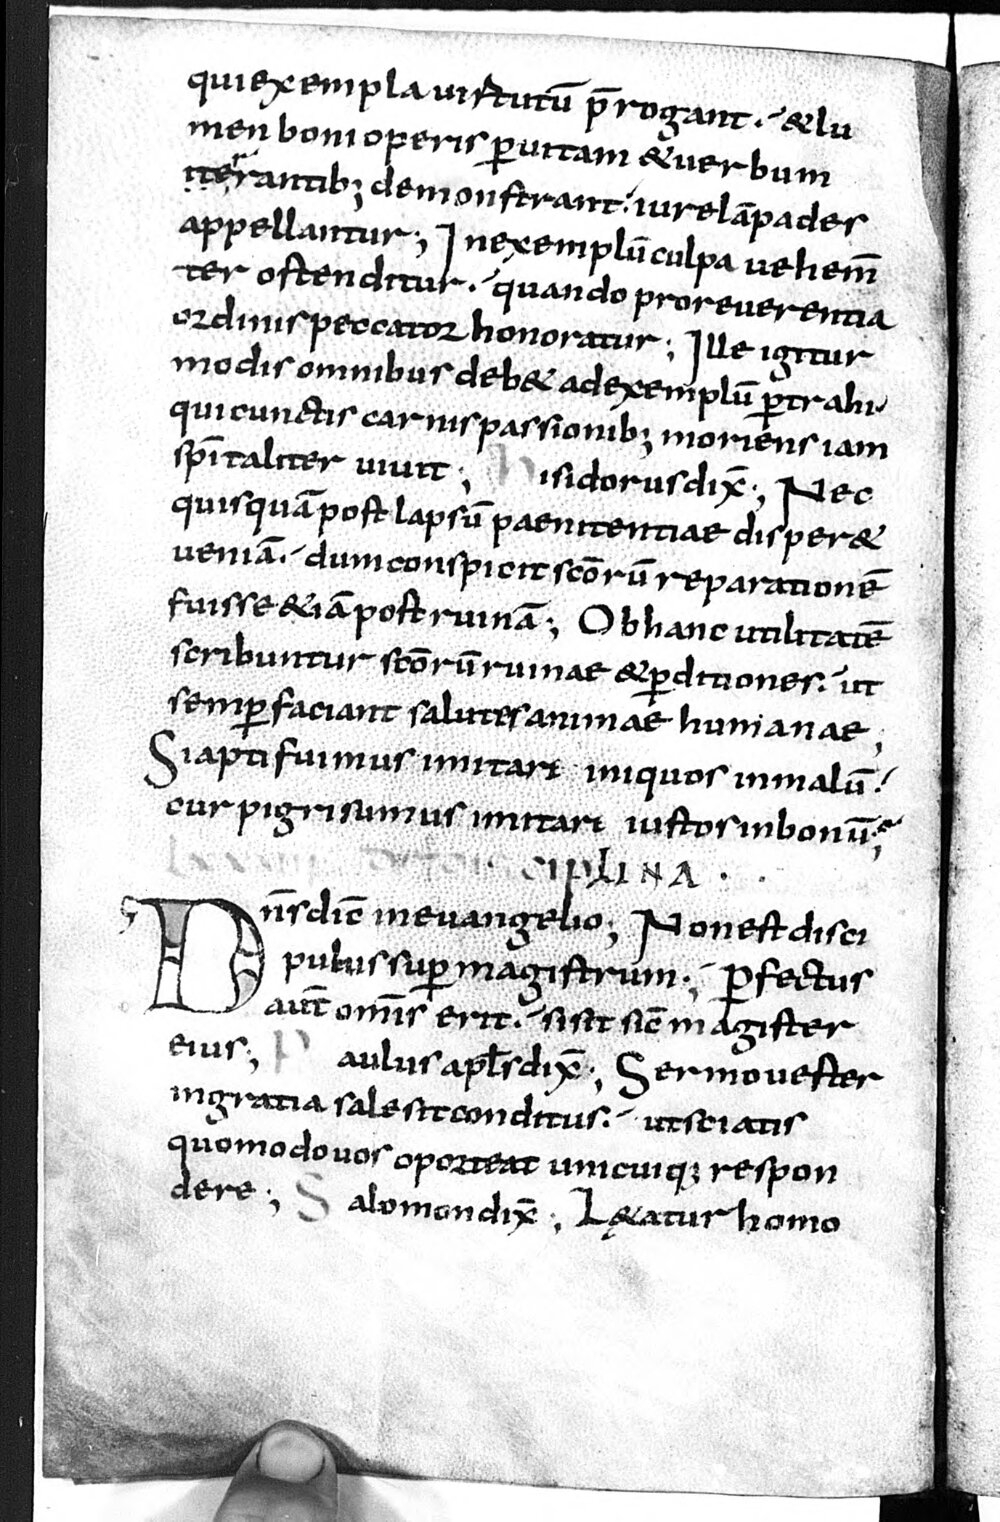 qui exempla uirtutū p̄rogant. &lu
men boni operis p̱uitam &uerbum
iterantib; demonstrant. iure lāpades
appellantur; Inexemplū culpa uehem̄
ter ostenditur. quando proreuerentia
ordinis peccator honoratur; Ille igitur
modis omnibus deb& adexemplū p̱trahi
qui cunctis carnis passionib; moriens iam
sp̄italiter uiuit; isidorus dix̄; Nec
quisquā post lapsū paenitentiae disper&
ueniā. dum conspicit sc̄orū reparationē
fuisse &iā post ruinā; Ob hanc utilitatē
scribuntur sc̄orū ruinae &p̱ditiones. ut
semp̱ faciant salutes animae humanae;
Si apti fuimus imitari iniquos in malū.
cur pigri sumus imitari iustos in bonū;
CIPLINA.
Dn̄s dic̄ in euangelio; Non est disci
pulus sup̱ magistrum; P̱fectus
aut̄ omīs erit. si sit sic̄ magister
eius; Paulus apl̄s dix̄; Sermo uester
ingratia sale sit conditus. ut sciatis
quomodo uos oporteat unicuiq; respon
dere; Salomon dix̄; Lę&atur homo